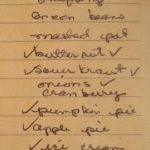 Green beans
mashed pot
✓butternut ✓
✓Sauerkraut ✓
onions ✓
cranberry
✓pumpkin pie
✓apple pie
✓ice cream